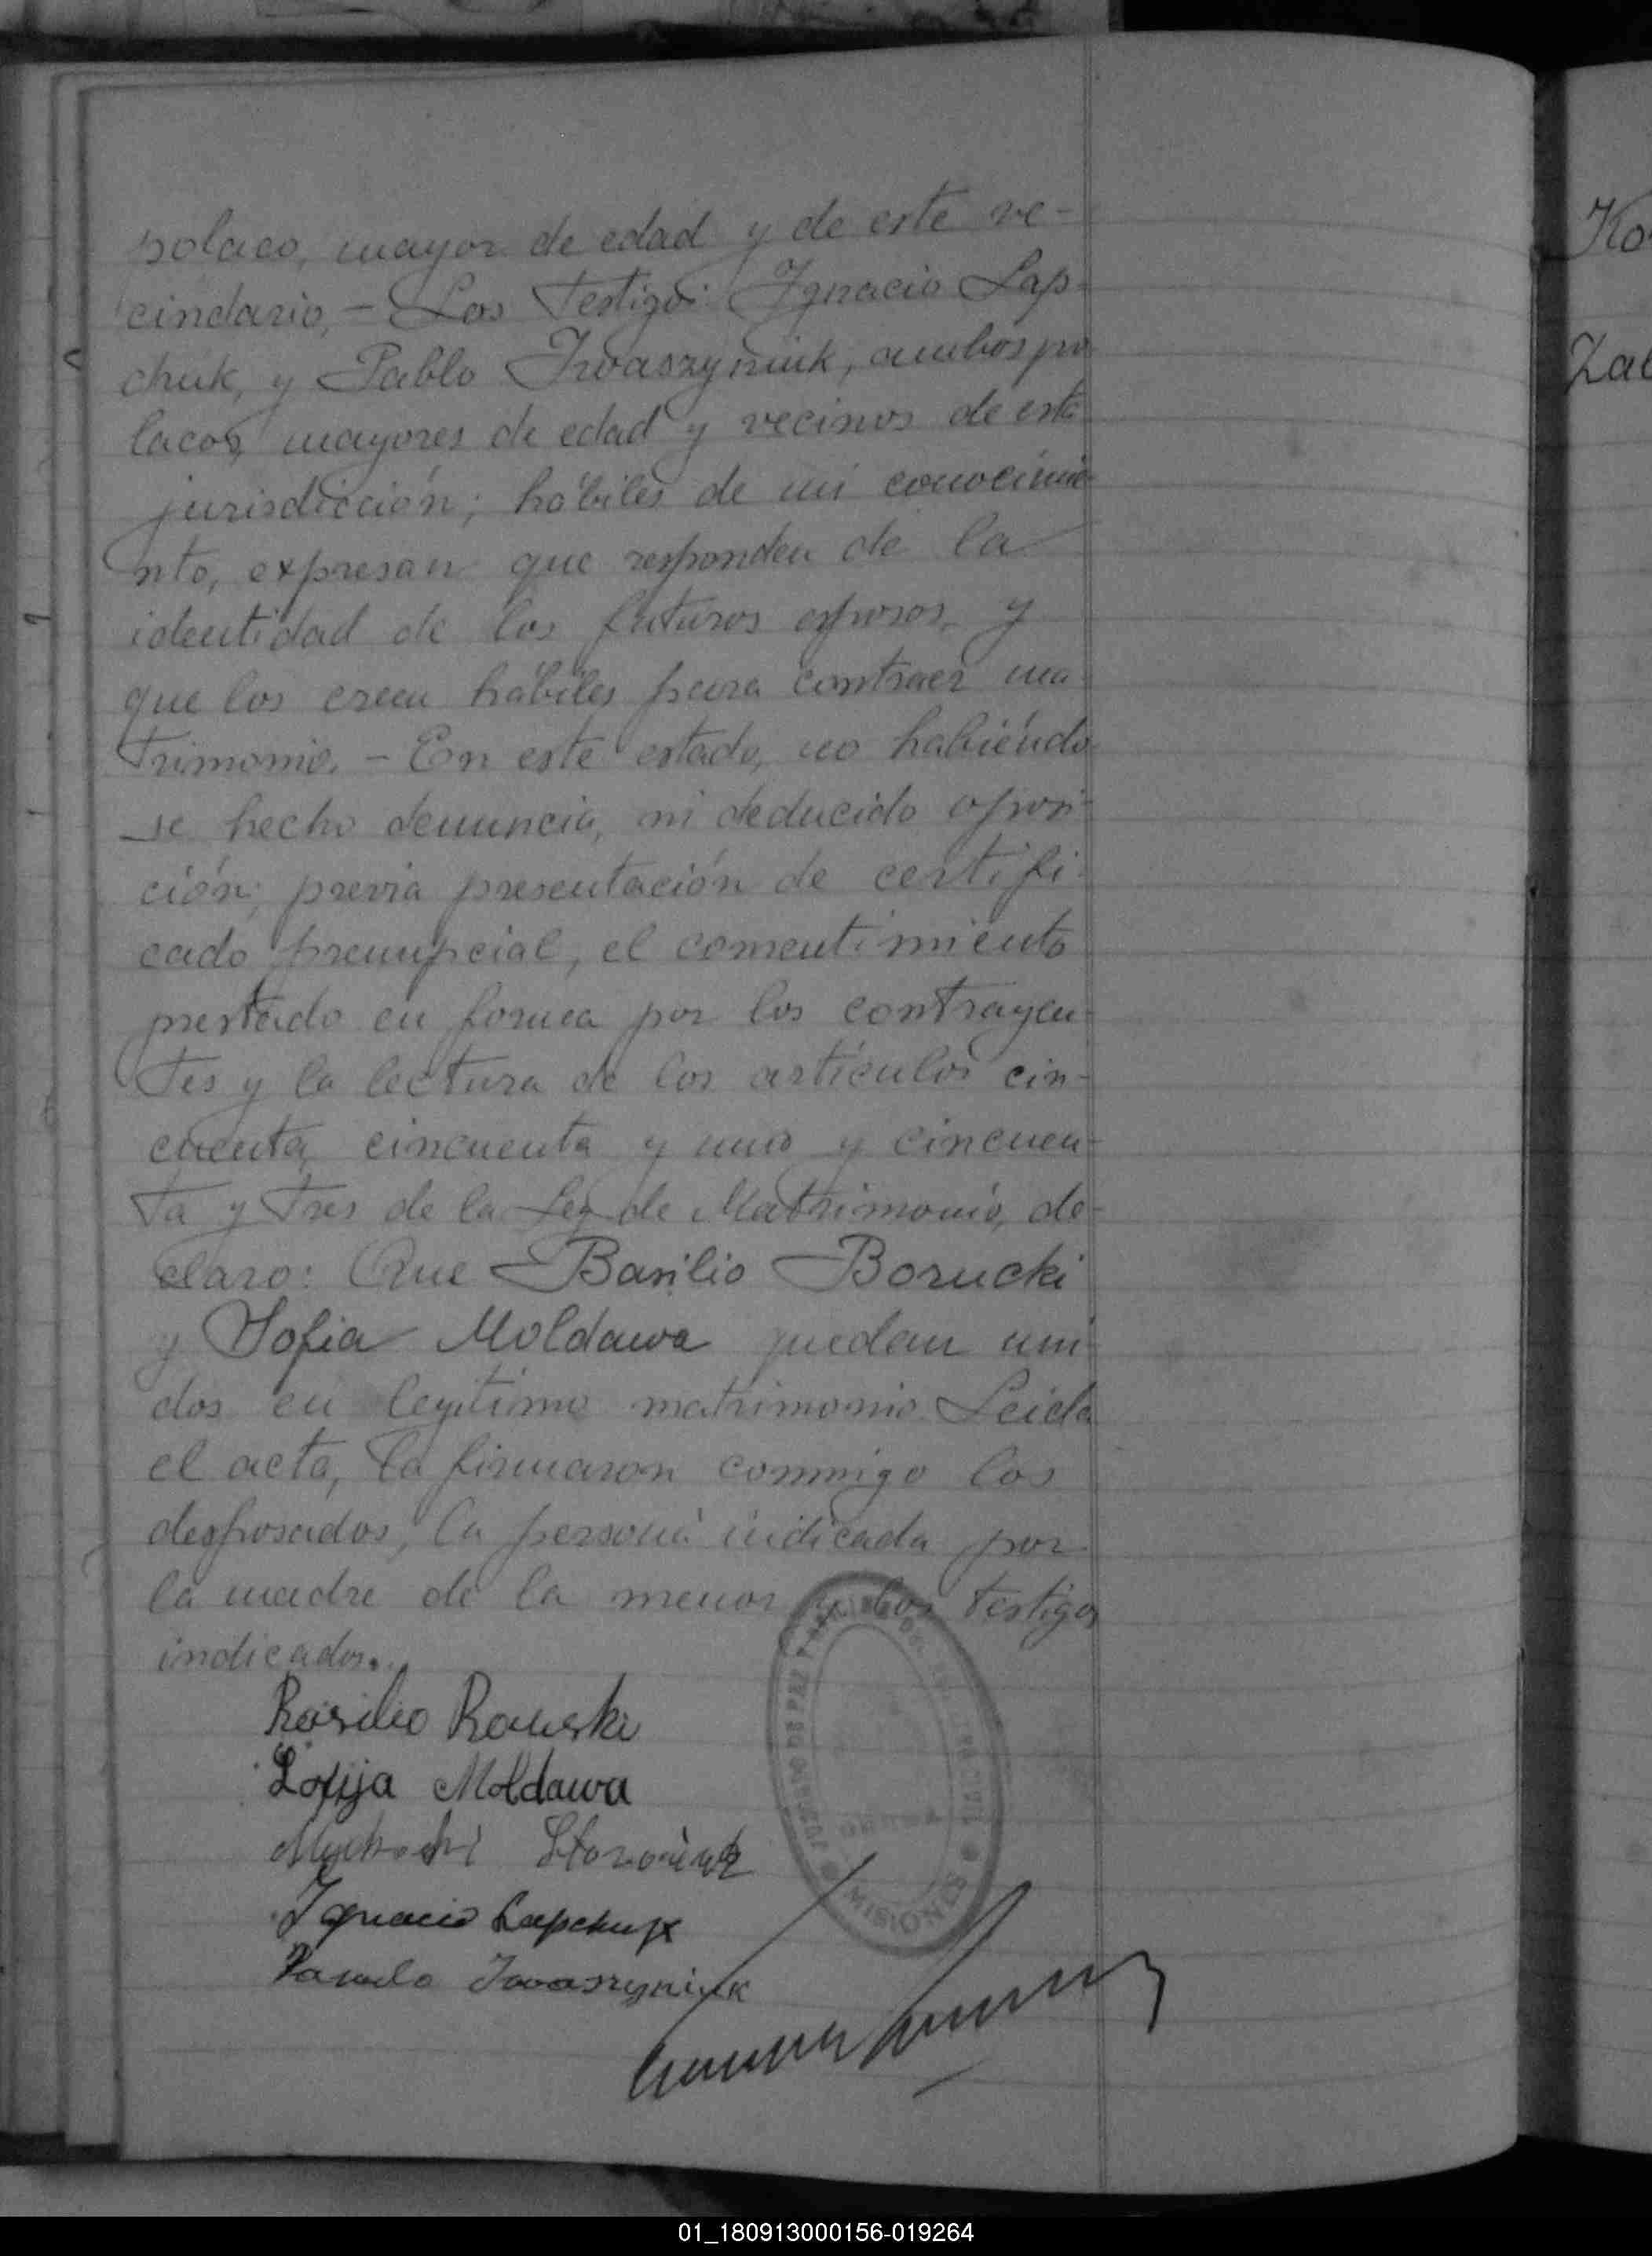 polaco, mayor de edad y de este ve-
cindario, - Los Testigos: Ygnacio Lap-
chuk, y Pablo Iwaszyniuk, ambos po-
lacos, mayores de edad y vecinos de esta
jurisdicción; hábiles de mi conocimie-
nto, expresan que responden de la
identidad de los futuros esposos, y
que los creen hábiles para contraer ma-
trimonio. - En este estado, no habiéndo-
se hecho denuncia, ni deducido oposi-
ción; previa presentación de certifi-
cado prenupcial, el consentimiento
prestado en forma por los contrayen-
tes y la lectura de los artículos cin-
cuenta, cincuenta y uno y cincuen-
ta y tres de la Ley de Matrimonio, de-
claro: Que Basilio Borucki
y Sofia Moldawa quedan uni-
dos en legítimo matrimonio. Leida
el acta, la firmaron conmigo los
desposados, la persona indicada por
la madre de la menor y los testigos
indicados.
Basilio
Zofija Moldawa
Ignacio Lapchuk
Iwaszyniuk
JUZGADO DE PAZ
MISIONES
Ko
Zal
01_180913000156-019264